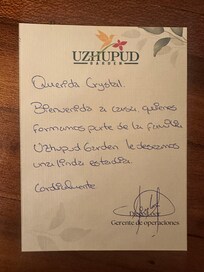 UZHUPUD
GARDEN
Querida Crystal.
Bienvenida a casa, quienes
formamos parte de la familia
Uzhupud Garden le deseamos
una linda estadía.
Cordialmente
Gerente de operaciones